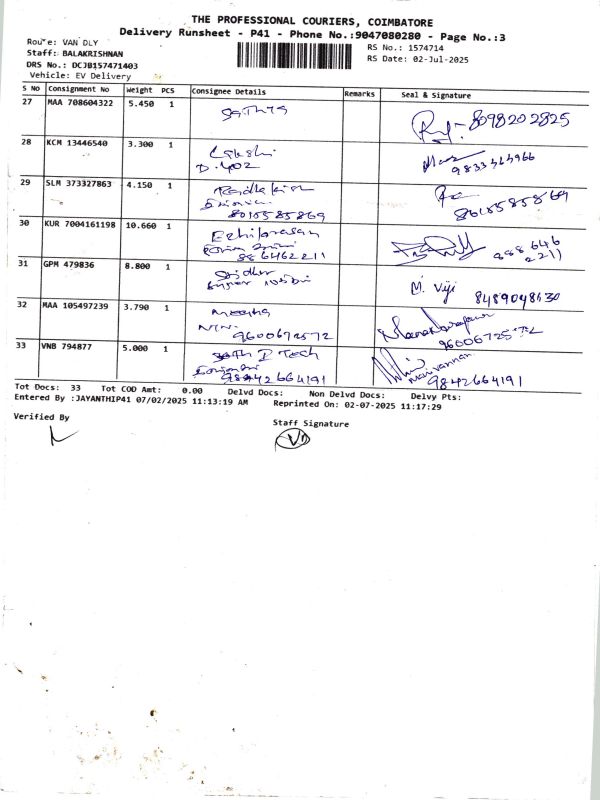 THE PROFESSIONAL COURIERS, COIMBATORE
Delivery Runsheet - P41 - Phone No.:9047080280 - Page No.:3
Route: VAN DLY
Staff: BALAKRISHNAN
DRS No.: DCJB157471403
Vehicle: EV Delivery
RS No.: 1574714
RS Date: 02-Jul-2025
S No Consignment No Weight PCS Consignee Details Remarks Seal & Signature
27 MAA 708604322 5.450 1 Sathya 8098202825
28 KCM 13446540 3.300 1
D.402
29 SLM 373327863 4.150 1 Radhakrish
8015585869
30 KUR 7004161198 10.660 1 Ezhilarasan
886462211
31 GPM 479836 8.800 1 Sridhar M. Viji 8489048130
32 MAA 105497239 3.790 1 Meegha
9600672572
33 VNB 794877 5.000 1 I Tech Manivannan
9842664191 9842664191
Tot Docs: 33 Tot COD Amt: 0.00 Delvd Docs: Non Delvd Docs: Delvy Pts:
Entered By :JAYANTHIP41 07/02/2025 11:13:19 AM Reprinted On: 02-07-2025 11:17:29
Verified By
Staff Signature